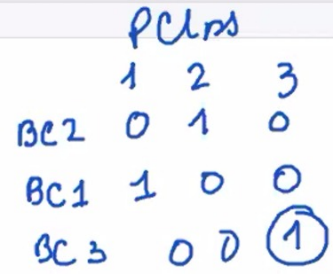 PClass
1 2 3
BC2 0 1 0
BC1 1 0 0
BC3 0 0 1